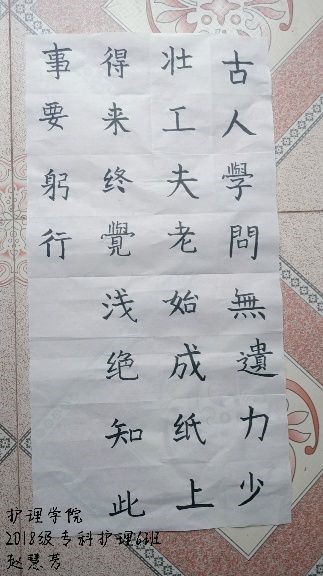 古人學問無遺力少
壮工夫老始成纸上
得来终覺浅绝知此
事要躬行
护理学院
2018级专科护理6班
赵慧芳